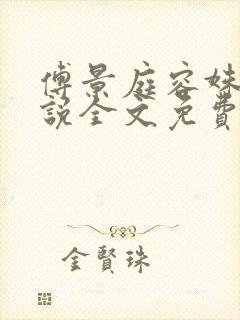 傅景庭容姝
説全文免費
金賢珠